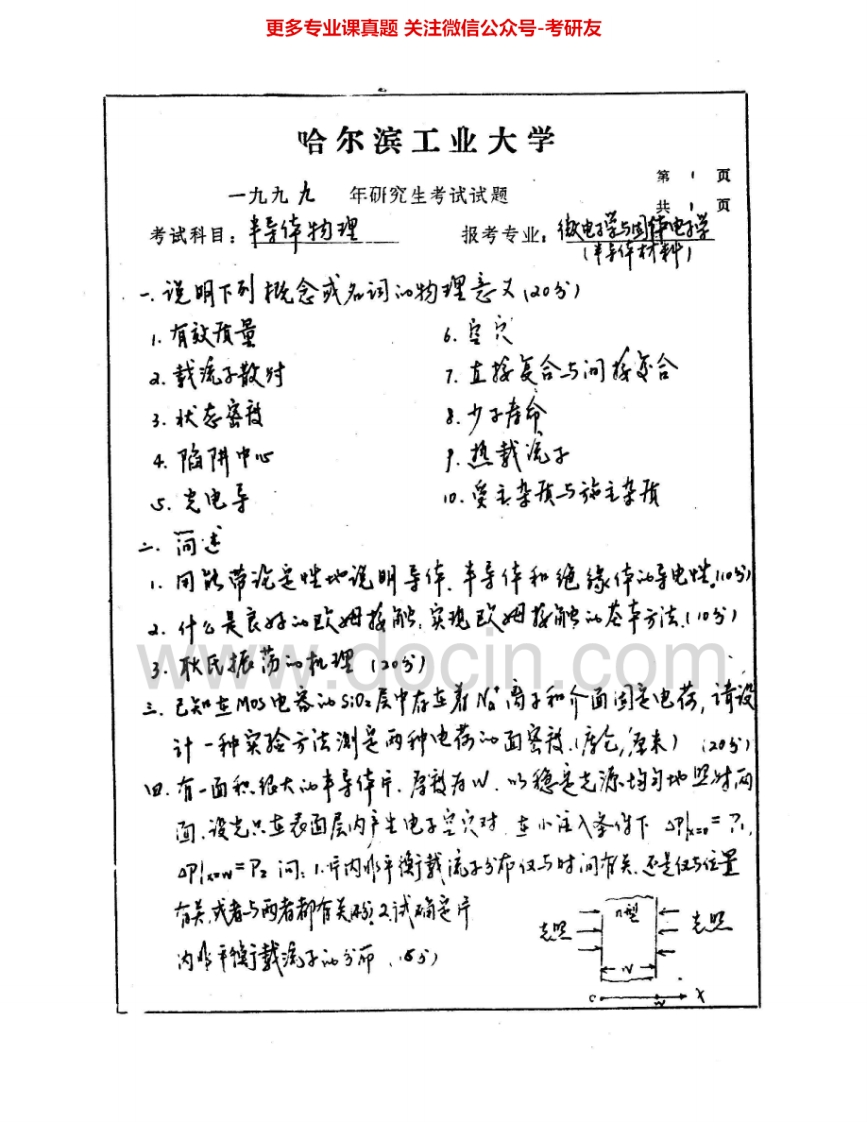 更多专业课真题 关注微信公众号-考研友
哈尔滨工业大学
第 1 页
一九九九 年研究生考试试题
共 1 页
考试科目：半导体物理 报考专业：微电子学与固体电子学
(半导体材料)
一.说明下列概念或名词的物理意义(20分)
1.有效质量 6.空穴
2.载流子散射 7.直接复合与间接复合
3.状态密度 8.少子寿命
4.陷阱中心 9.热载流子
5.光电导 10.受主杂质与施主杂质
二.简述
1.用能带论定性地说明导体.半导体和绝缘体的导电性.(10分)
2.什么是良好的欧姆接触,实现欧姆接触的基本方法.(10分)
3.耿氏振荡的机理(20分)
www.docin.com
三.已知在MOS电容的SiO₂层中存在着Na⁺离子和介面固定电荷,请设
计一种实验方法测定两种电荷的面密度.(方法,原来)(20分)
四.有一面积很大的半导体片.厚度为W.以稳定光源均匀地照射两
面.设光只在表面层内产生电子空穴对.在小注入条件下 ΔP|x=0=P₁,
ΔP|x=W=P₂ 问:1.片内非平衡载流子分布仅与时间有关.还是仅与位置
有关,或者与两者都有关. 2.试确定片
内非平衡载流子的分布.
光照 n型 光照
W
0 W X